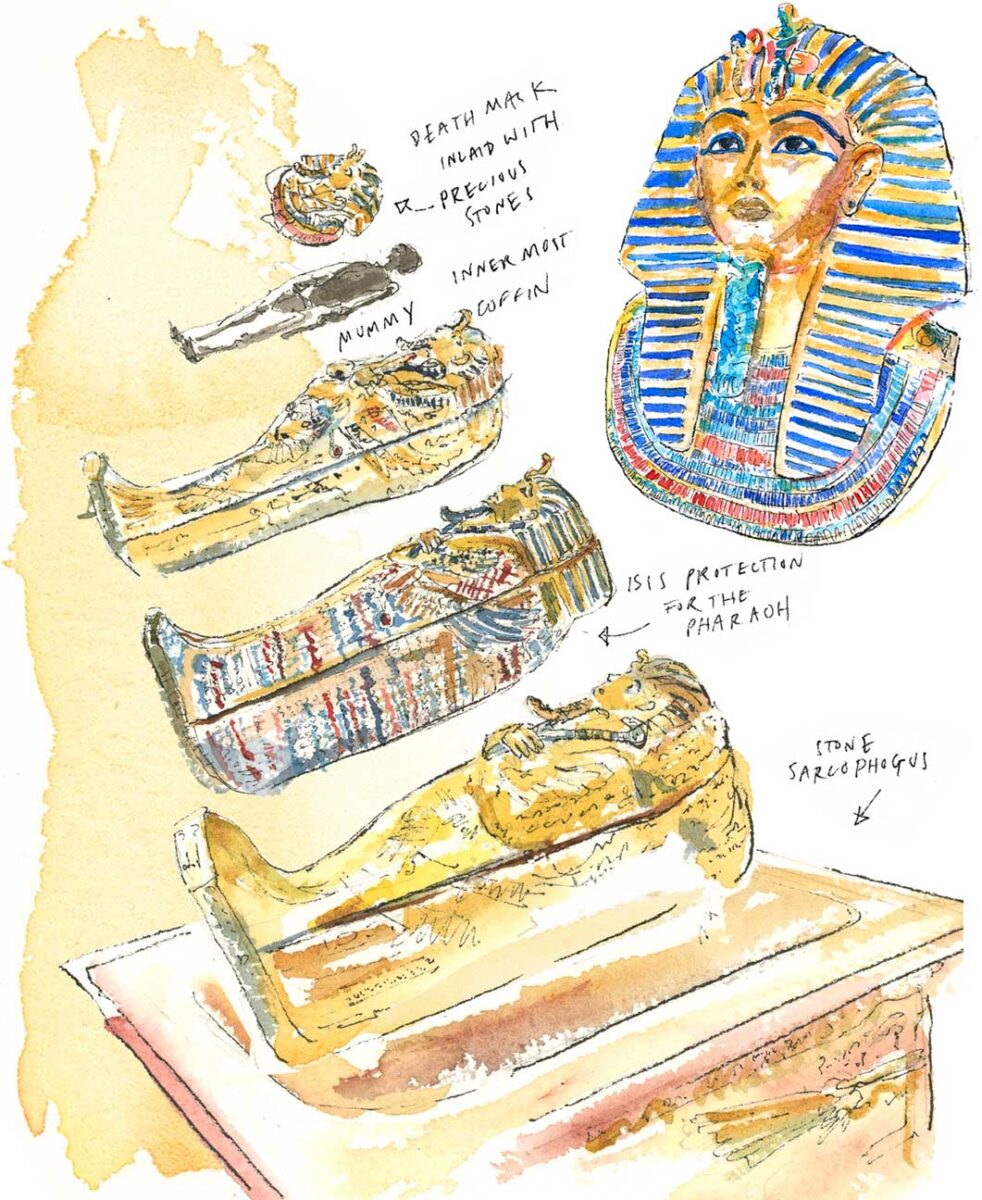 DEATH MASK
INLAID WITH
PRECIOUS
STONES
INNER MOST
COFFIN
MUMMY
ISIS PROTECTION
FOR THE
PHARAOH
STONE
SARCOPHOGUS